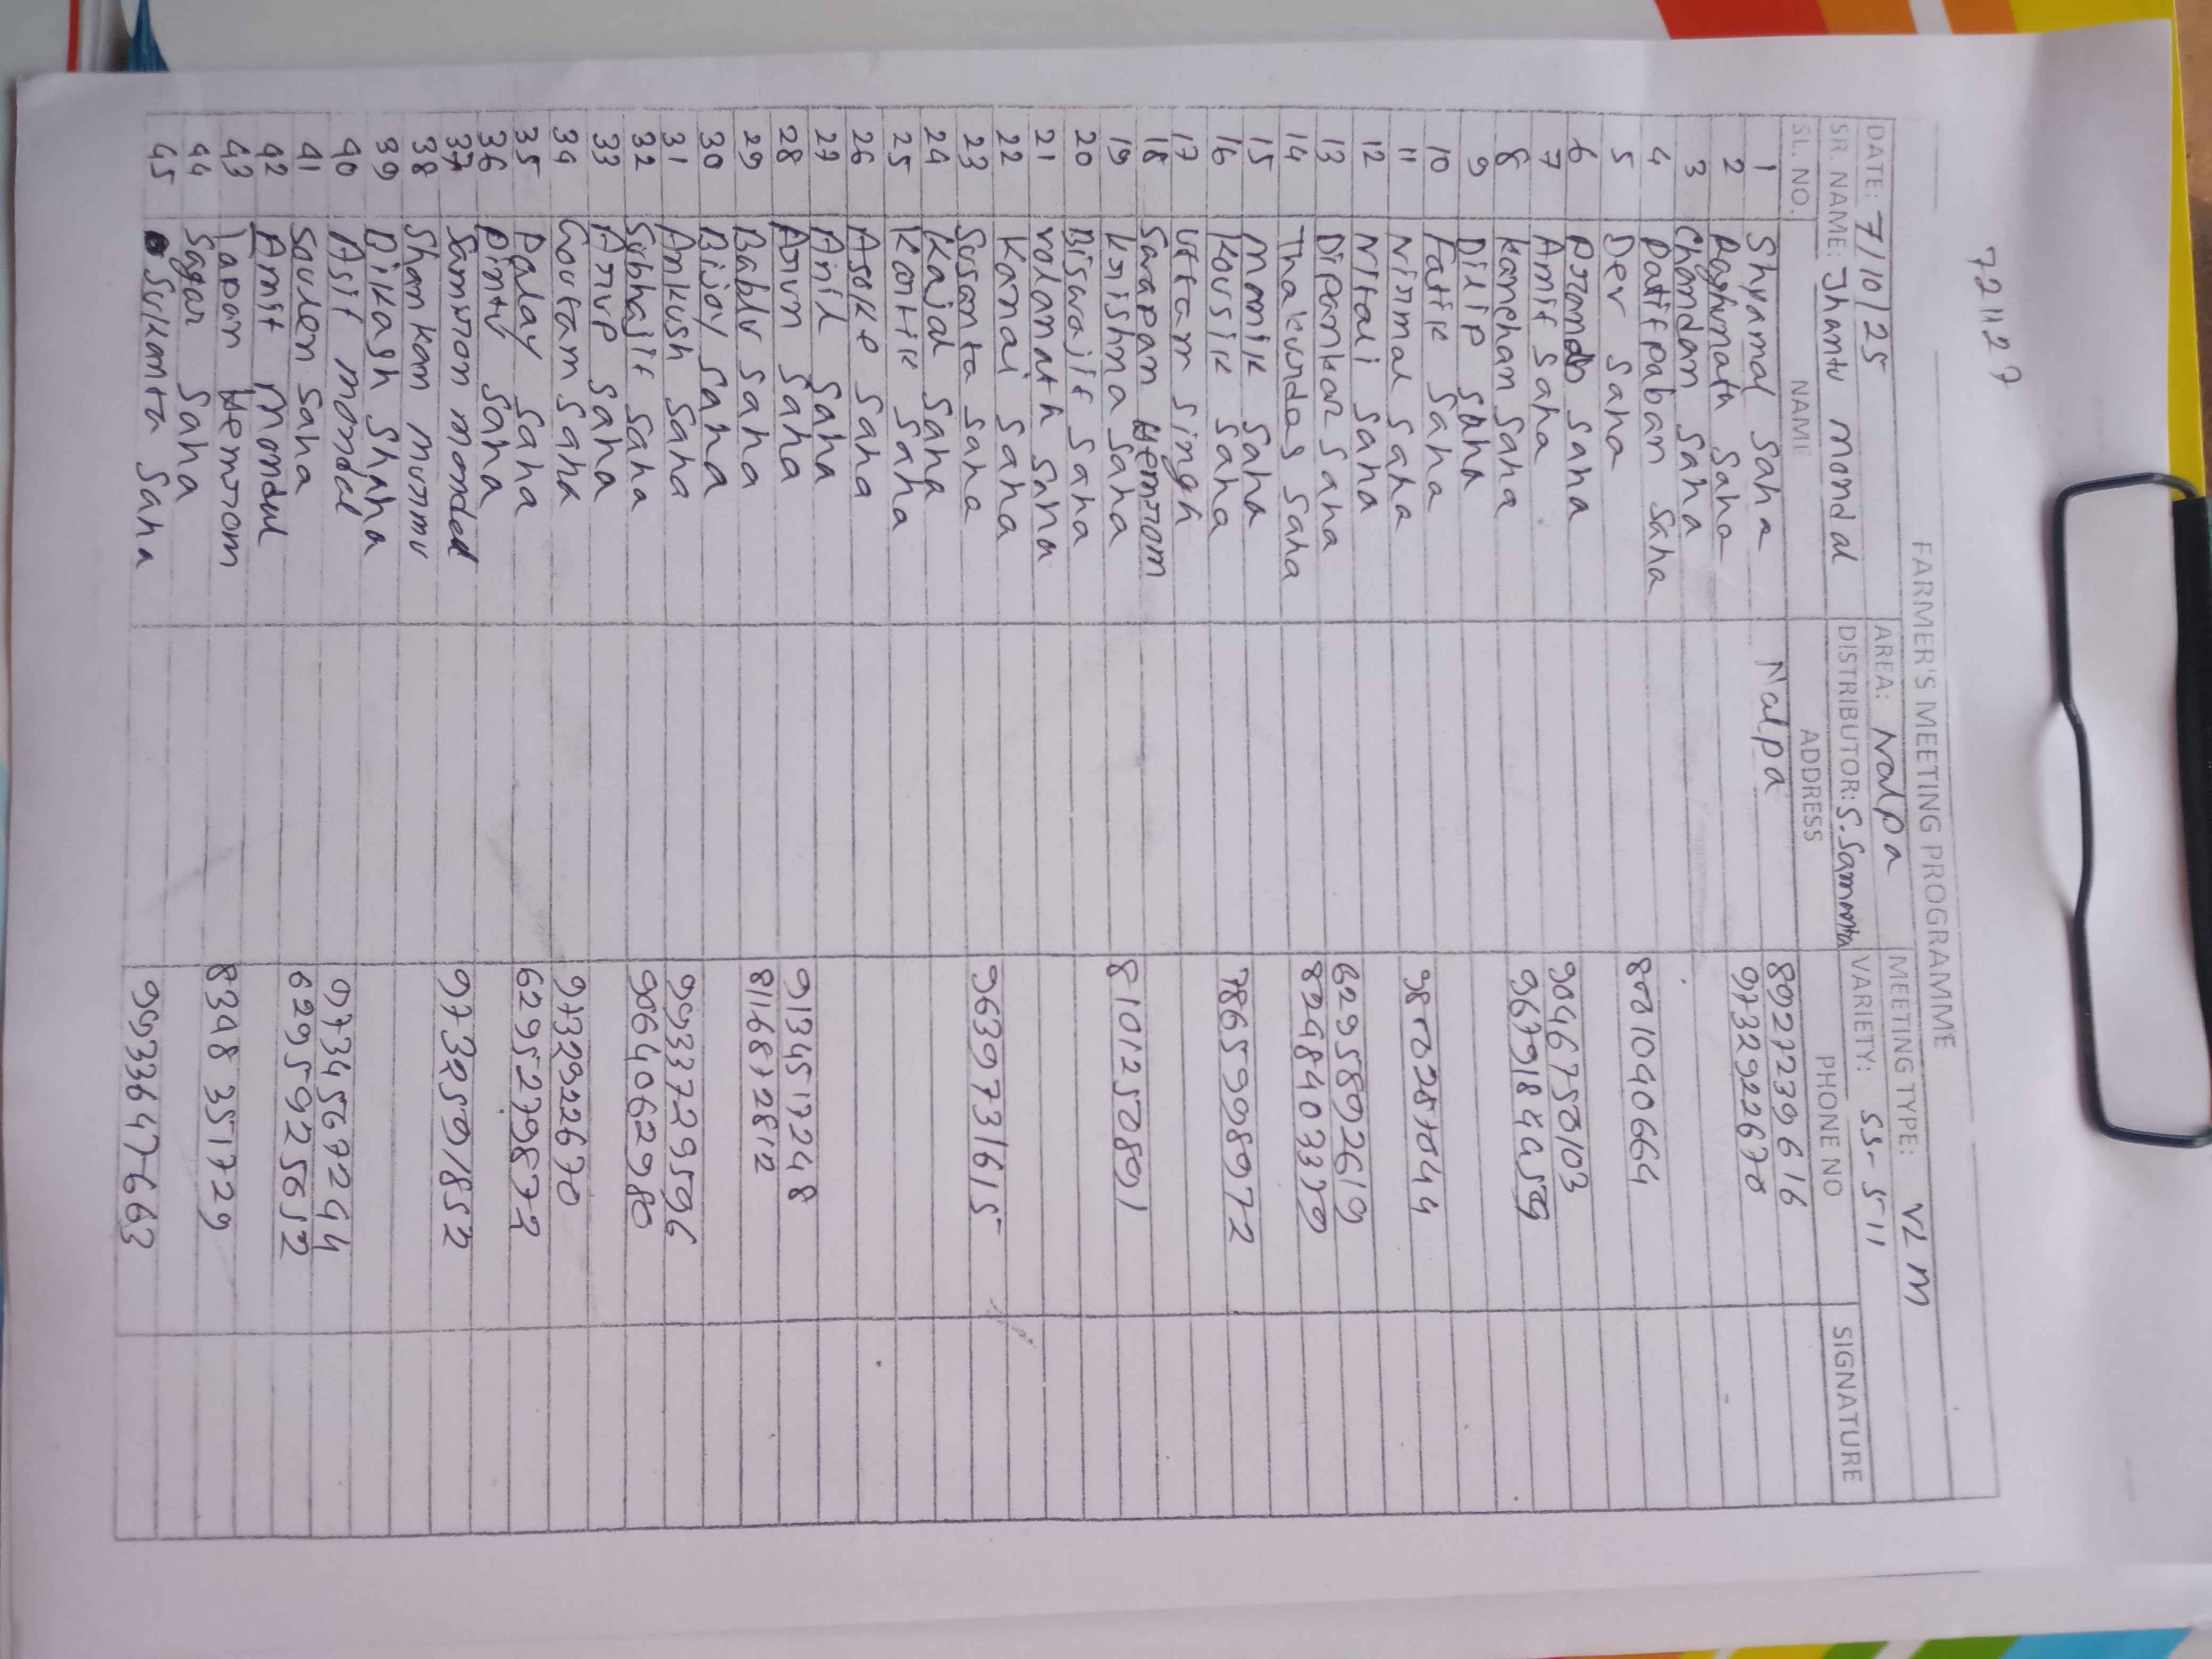 721127
FARMER'S MEETING PROGRAMME
DATE: 7/10/25 AREA: Nalpa MEETING TYPE: VLM
SR. NAME: Jhantu mondal DISTRIBUTOR: S. Samanta VARIETY: SS-511
SL. NO. NAME ADDRESS PHONE NO SIGNATURE
1 Shyamal Saha Nalpa 8927239616
2 Raghunath Saha 9732922670
3 Chandan Saha
4 Patitpaban Saha
5 Dev Saha 8001040664
6 Saha
7 Amit Saha 9046750103
8 Kanchan Saha
9 Dilip Saha
10 Fatik Saha
11 Nirmal Saha
12 Nitai Saha
13 Dipankar Saha 6295892619
14 Thakurdas Saha
15 Manik Saha
16 Kousik Saha 7865998972
17 Uttam Singh
18 Sarapan Hemrom
19 Krishna Saha 8101250891
20 Biswajit Saha
21 Saha
22 Kanai Saha
23 Susanta Saha 9639731615
24 Kajal Saha
25 Kartik Saha
26 Asoke Saha
27 Anil Saha
28 Arun Saha 9134517248
29 Bablu Saha 8116872812
30 Bijoy Saha
31 Ankush Saha 9933729596
32 Subhajit Saha 9064062980
33 Arup Saha
34 Goutam Saha 9732922670
35 Palay Saha 6295279872
36 Pintu Saha
37 mondal 9732591852
38 Shankar murmu
39 Bikash Shaha
40 Asit mondal 9734567244
41 Soulen Saha 6295925652
42 Amit Mondal
43 Tapan Hemrom 8348351729
44 Sagar Saha
45 Sukanta Saha 9933647663